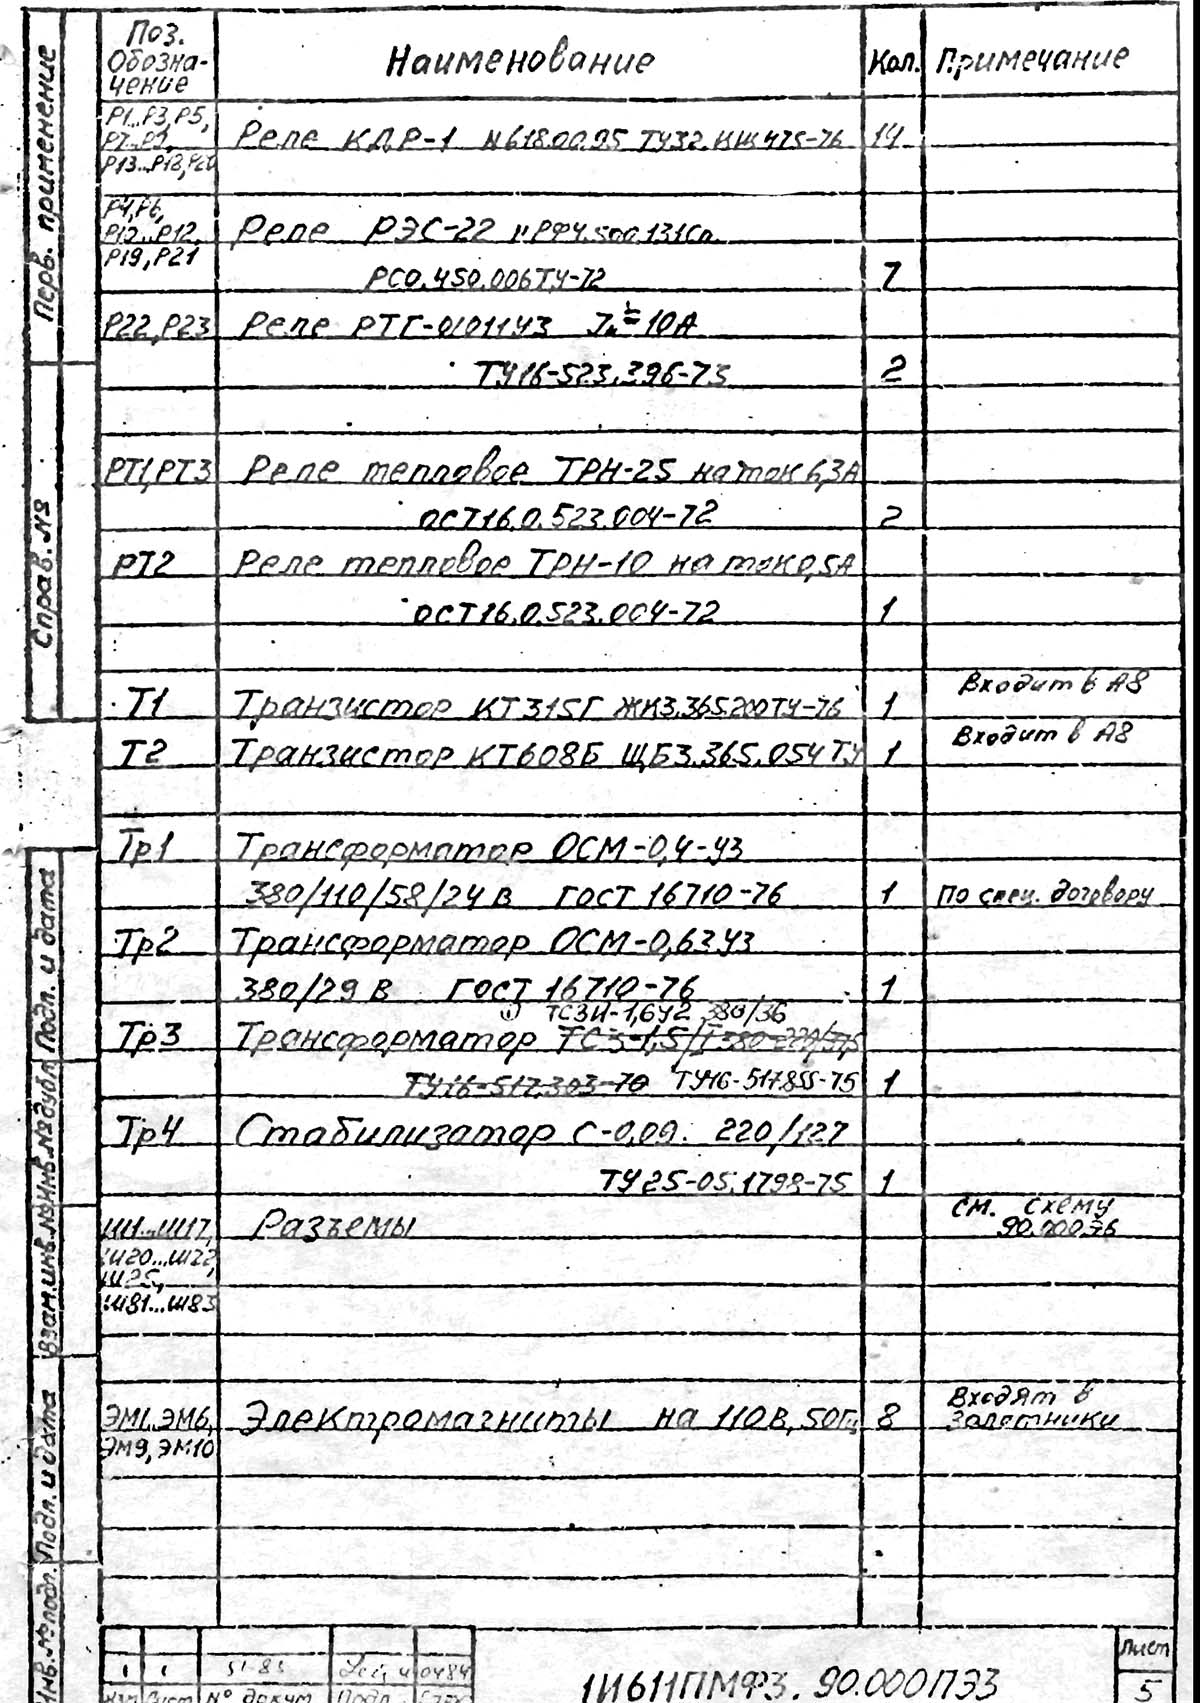 Поз.
Обозна-
чение
Наименование
Кол.
Примечание
Р1...Р3, Р5,
Р7...Р9,
Р13...Р18, Р20
Реле КДР-1 N618.00.95 ТУ32.КШ475-76 14
Р4, Р6,
Р10...Р12,
Р19, Р21
Реле РЭС-22 РФ4.500.131Сп.
РС0.450.006ТУ-72 7
Р22, Р23 Реле РТГ-01011У3 = 10А
ТУ16-523.396-73 2
РТ1, РТ3 Реле тепловое ТРН-25 на ток 6,3А
ОСТ16.0.523.004-72 2
РТ2 Реле тепловое ТРН-10 на ток 0,5А
ОСТ16.0.523.004-72 1
Т1 Транзистор КТ315Г ЖК3.365.200ТУ-76 1 Входит в А8
Т2 Транзистор КТ608Б ЩБ3.365.054ТУ 1 Входит в А8
Тр1 Трансформатор ОСМ-0,4-У3
380/110/58/24 В ГОСТ 16710-76 1 по спец. договору
Тр2 Трансформатор ОСМ-0,63У3
380/29 В ГОСТ 16710-76 1
ТСЗИ-1,6У2 380/36
Тр3 Трансформатор ТСЗ-1,5/1 380-220/36
ТУ16-517.303-70 ТУ16-517.855-75 1
Тр4 Стабилизатор С-0,09. 220/127
ТУ25-05.1798-75 1
Ш1...Ш17,
Ш20...Ш22,
Ш25,
Ш81...Ш83
Разъемы
см. схему
90.000Э6
ЭМ1...ЭМ6,
ЭМ9, ЭМ10
Электромагниты на 110В, 50Гц 8
Входят в
Золотники
Перв. применение
Справ. №
Подп. и дата
Инв.№дубл
Взам.инв.№
Подп. и дата
Инв.№подл.
1 1 51-85 0484
Изм Лист № докум Подп.
1И611ПМФ3. 90.000ПЭ3
Лист
5